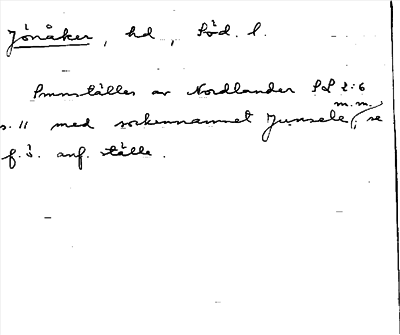 Jönåker, hd, Söd. l.
Smnställes av Nordlander SL 2:6
s. 11 med sockennamnet Junsele m.m., se
f. ö. anf. ställe.